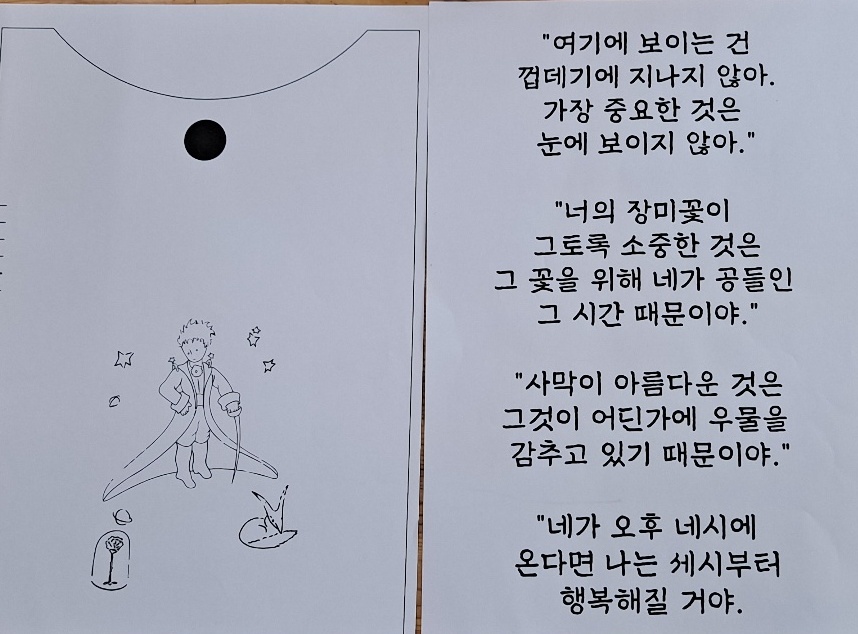 "여기에 보이는 건
껍데기에 지나지 않아.
가장 중요한 것은
눈에 보이지 않아."
"너의 장미꽃이
그토록 소중한 것은
그 꽃을 위해 네가 공들인
그 시간 때문이야."
"사막이 아름다운 것은
그것이 어딘가에 우물을
감추고 있기 때문이야."
"네가 오후 네시에
온다면 나는 세시부터
행복해질 거야.